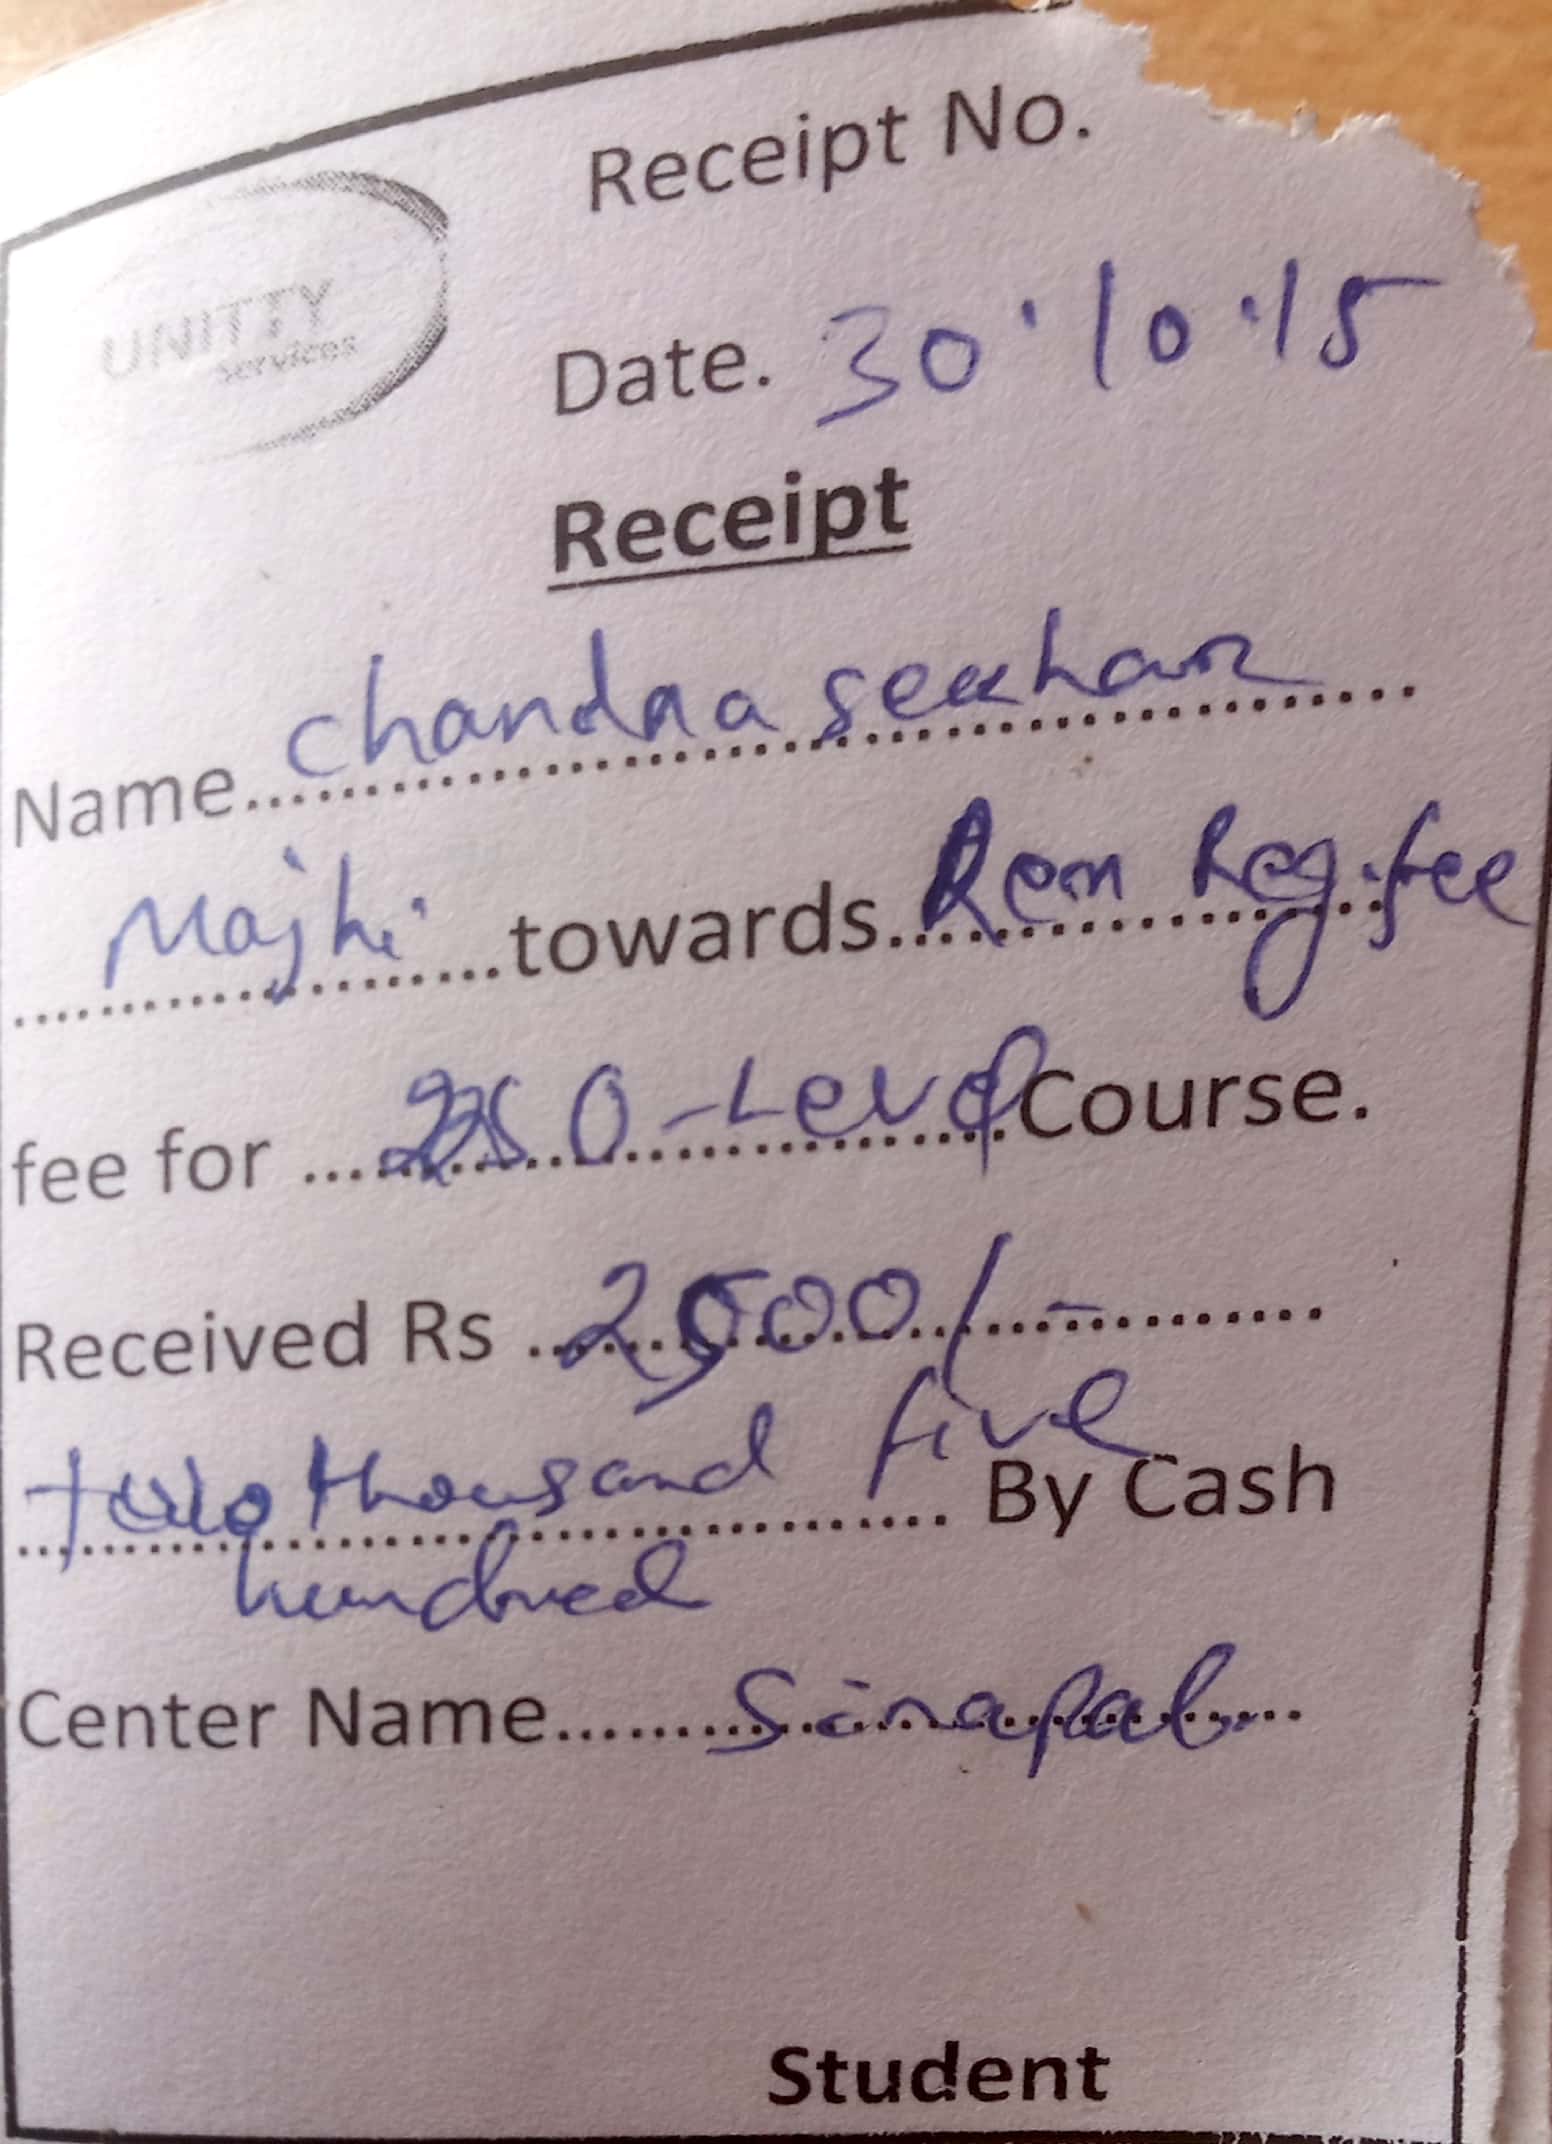 Receipt No.
UNITTY
services
Date. 30.10.15
Receipt
Name chandra sekhar
Majhi towards Rem Reg. fee
fee for O-Level Course.
Received Rs 2500/-
two thousand five
By Cash
hundred
Center Name Sinapali
Student